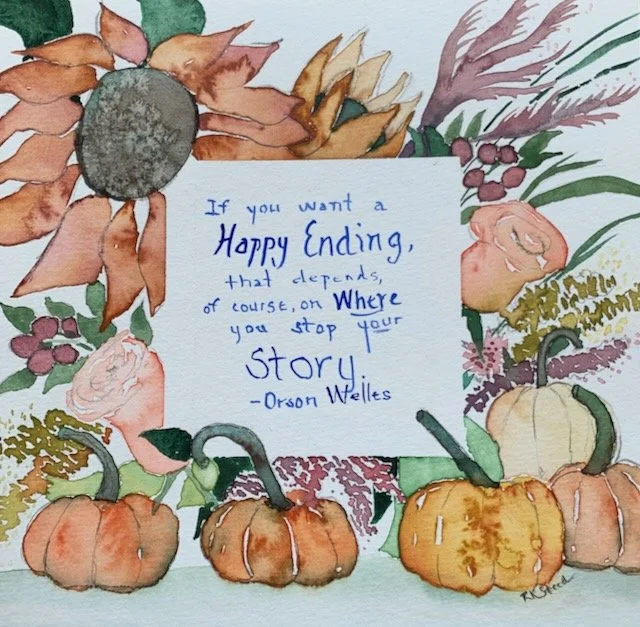 If you want a
Happy Ending,
that depends,
of course, on Where
you stop your
Story.
-Orson Welles
RKSteed